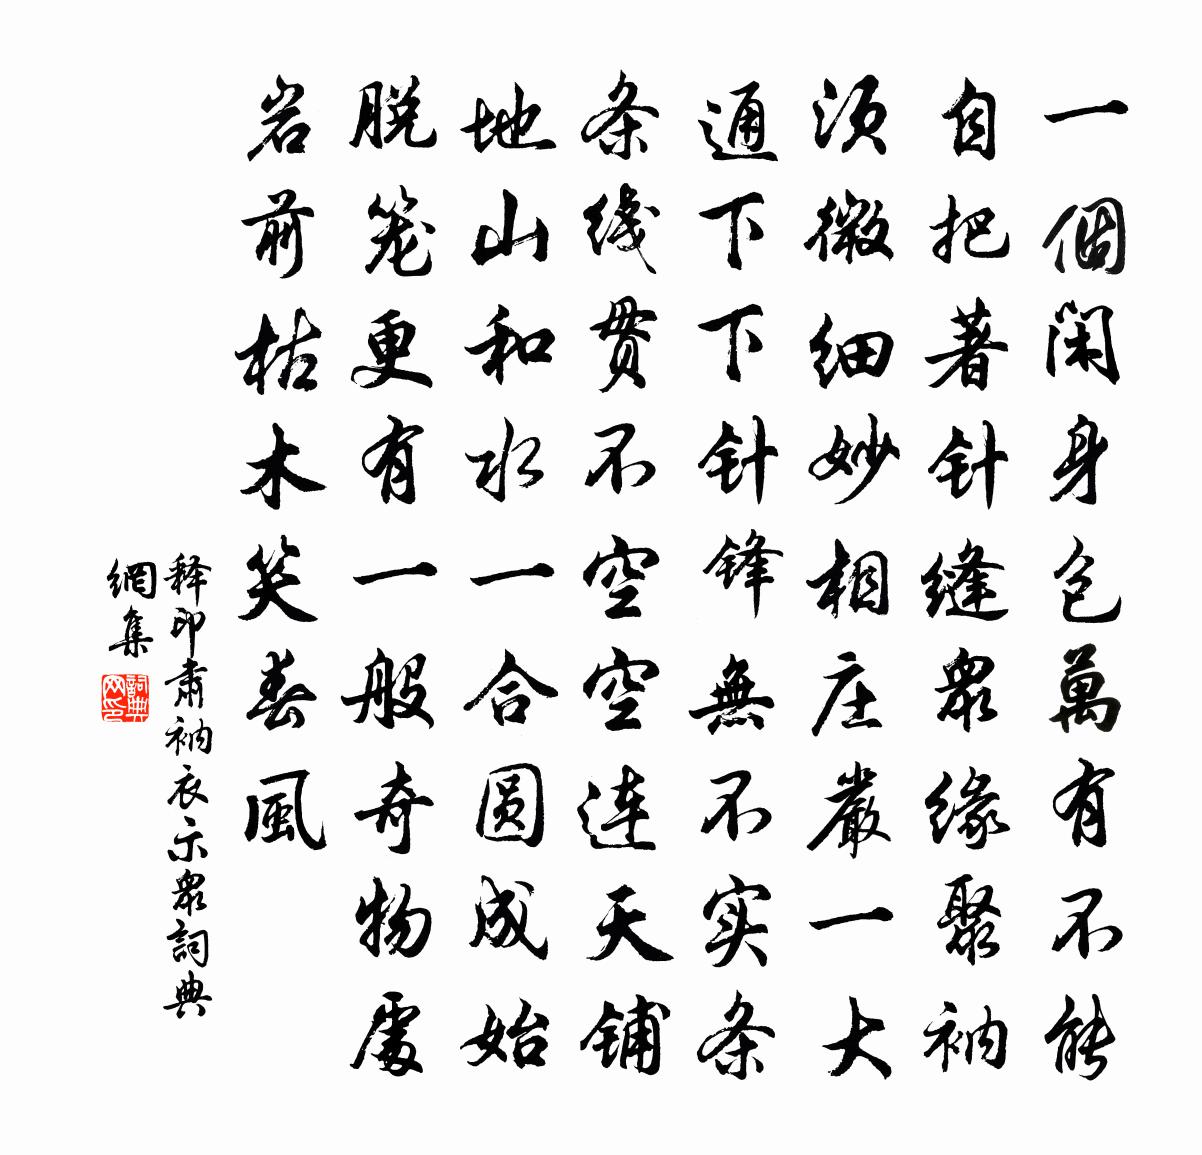 一個閑身包萬有不能
自把著针縫眾緣聚衲
须微細妙相庄嚴一大
通下下针锋無不实条
条线贯不空空连天铺
地山和水一合圆成始
脱笼更有一般奇物處
岩前枯木笑春風
释印肃衲衣示眾詞典
網集
詞典